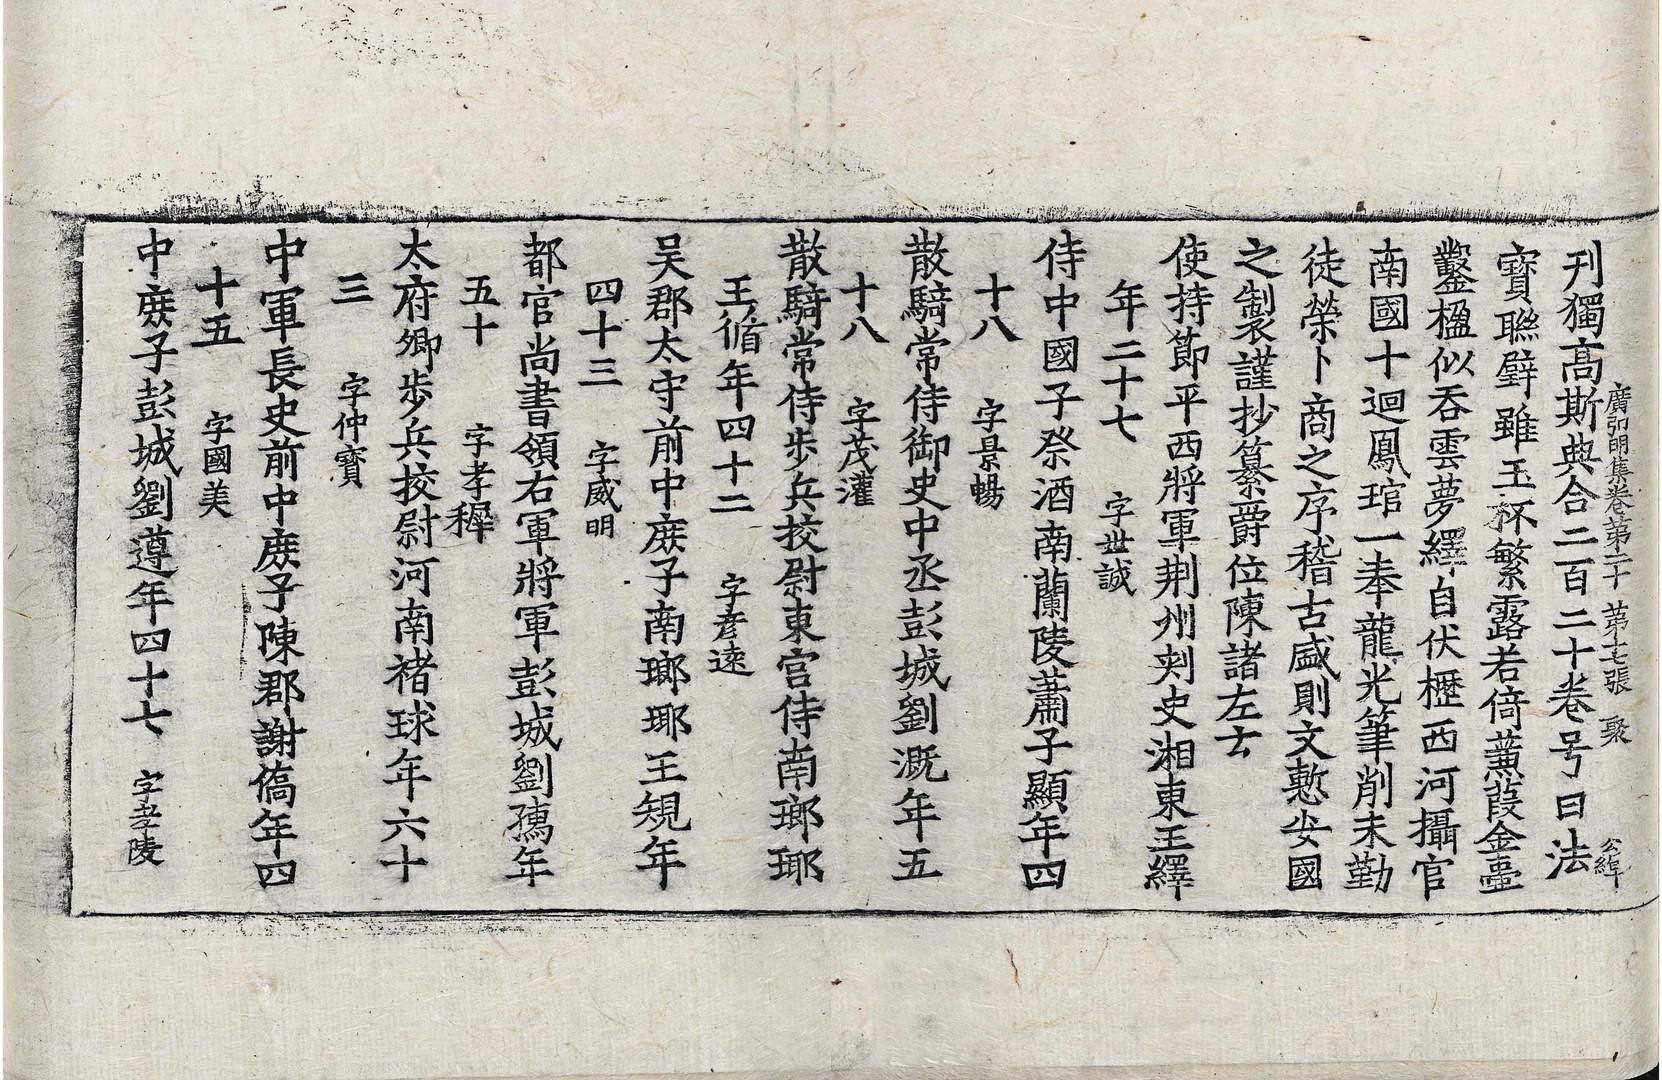 廣弘明集卷第二十 第十七張 聚 公縡
刋獨髙斯典合二百二十卷号曰法
寳聯璧雖玉杯繁露若倚蒹葭金壷
鑿楹似吞雲夢繹自伏櫪西河攝官
南國十迴鳳琯一奉龍光筆削未勤
徒榮卜商之序稽古盛則文慙安國
之製謹抄纂爵位陳諸左方
使持節平西將軍荆州刺史湘東王繹
年二十七 字世誠
侍中國子祭酒南蘭陵蕭子顯年四
十八 字景暢
散騎常侍御史中丞彭城劉溉年五
十八 字茂灌
散騎常侍步兵校尉東宫侍南瑯瑘
王循年四十二 字彦逺
吴郡太守前中庻子南瑯瑘王規年
四十三 字威明
都官尚書領右軍將軍彭城劉孺年
五十 字孝稺
太府卿步兵校尉河南褚球年六十
三 字仲寳
中軍長史前中庻子陳郡謝僑年四
十五 字國美
中庻子彭城劉遵年四十七 字孝陵